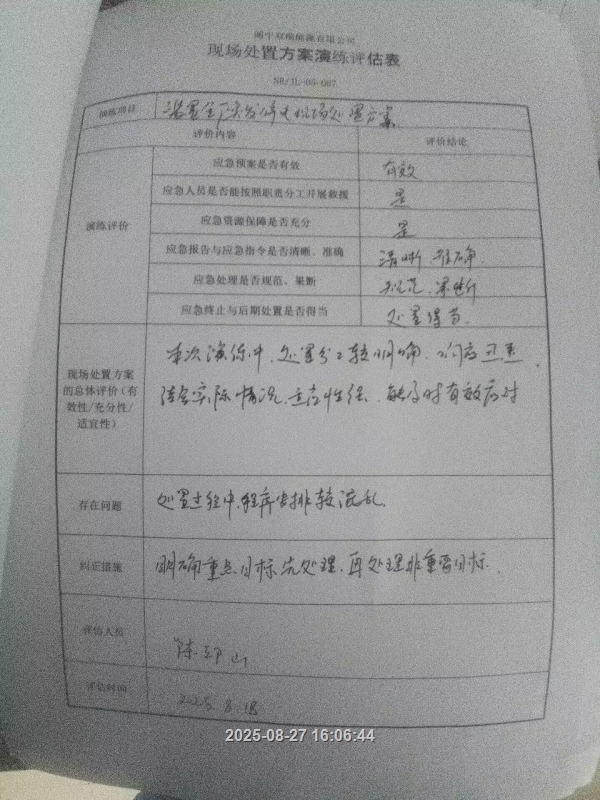 现场处置方案演练评估表
演练项目
评价内容 评价结论
演练评价
应急预案是否有效 有效
应急人员是否能按照职责分工开展救援 是
应急资源保障是否充分 是
应急报告与应急指令是否清晰、准确 清晰、准确.
应急处理是否规范、果断 规范、果断
应急终止与后期处置是否得当 处置得当.
现场处置方案
的总体评价(有
效性/充分性/
适宜性)
本次演练中,处置分工较明确,响应迅速.
结合实际情况,适应性强,能及时有效应对
存在问题 处置过程中,程序安排较混乱.
纠正措施 明确重点目标先处理,再处理非重要目标.
评估人员
评估时间 2025.8.18
2025-08-27 16:06:44